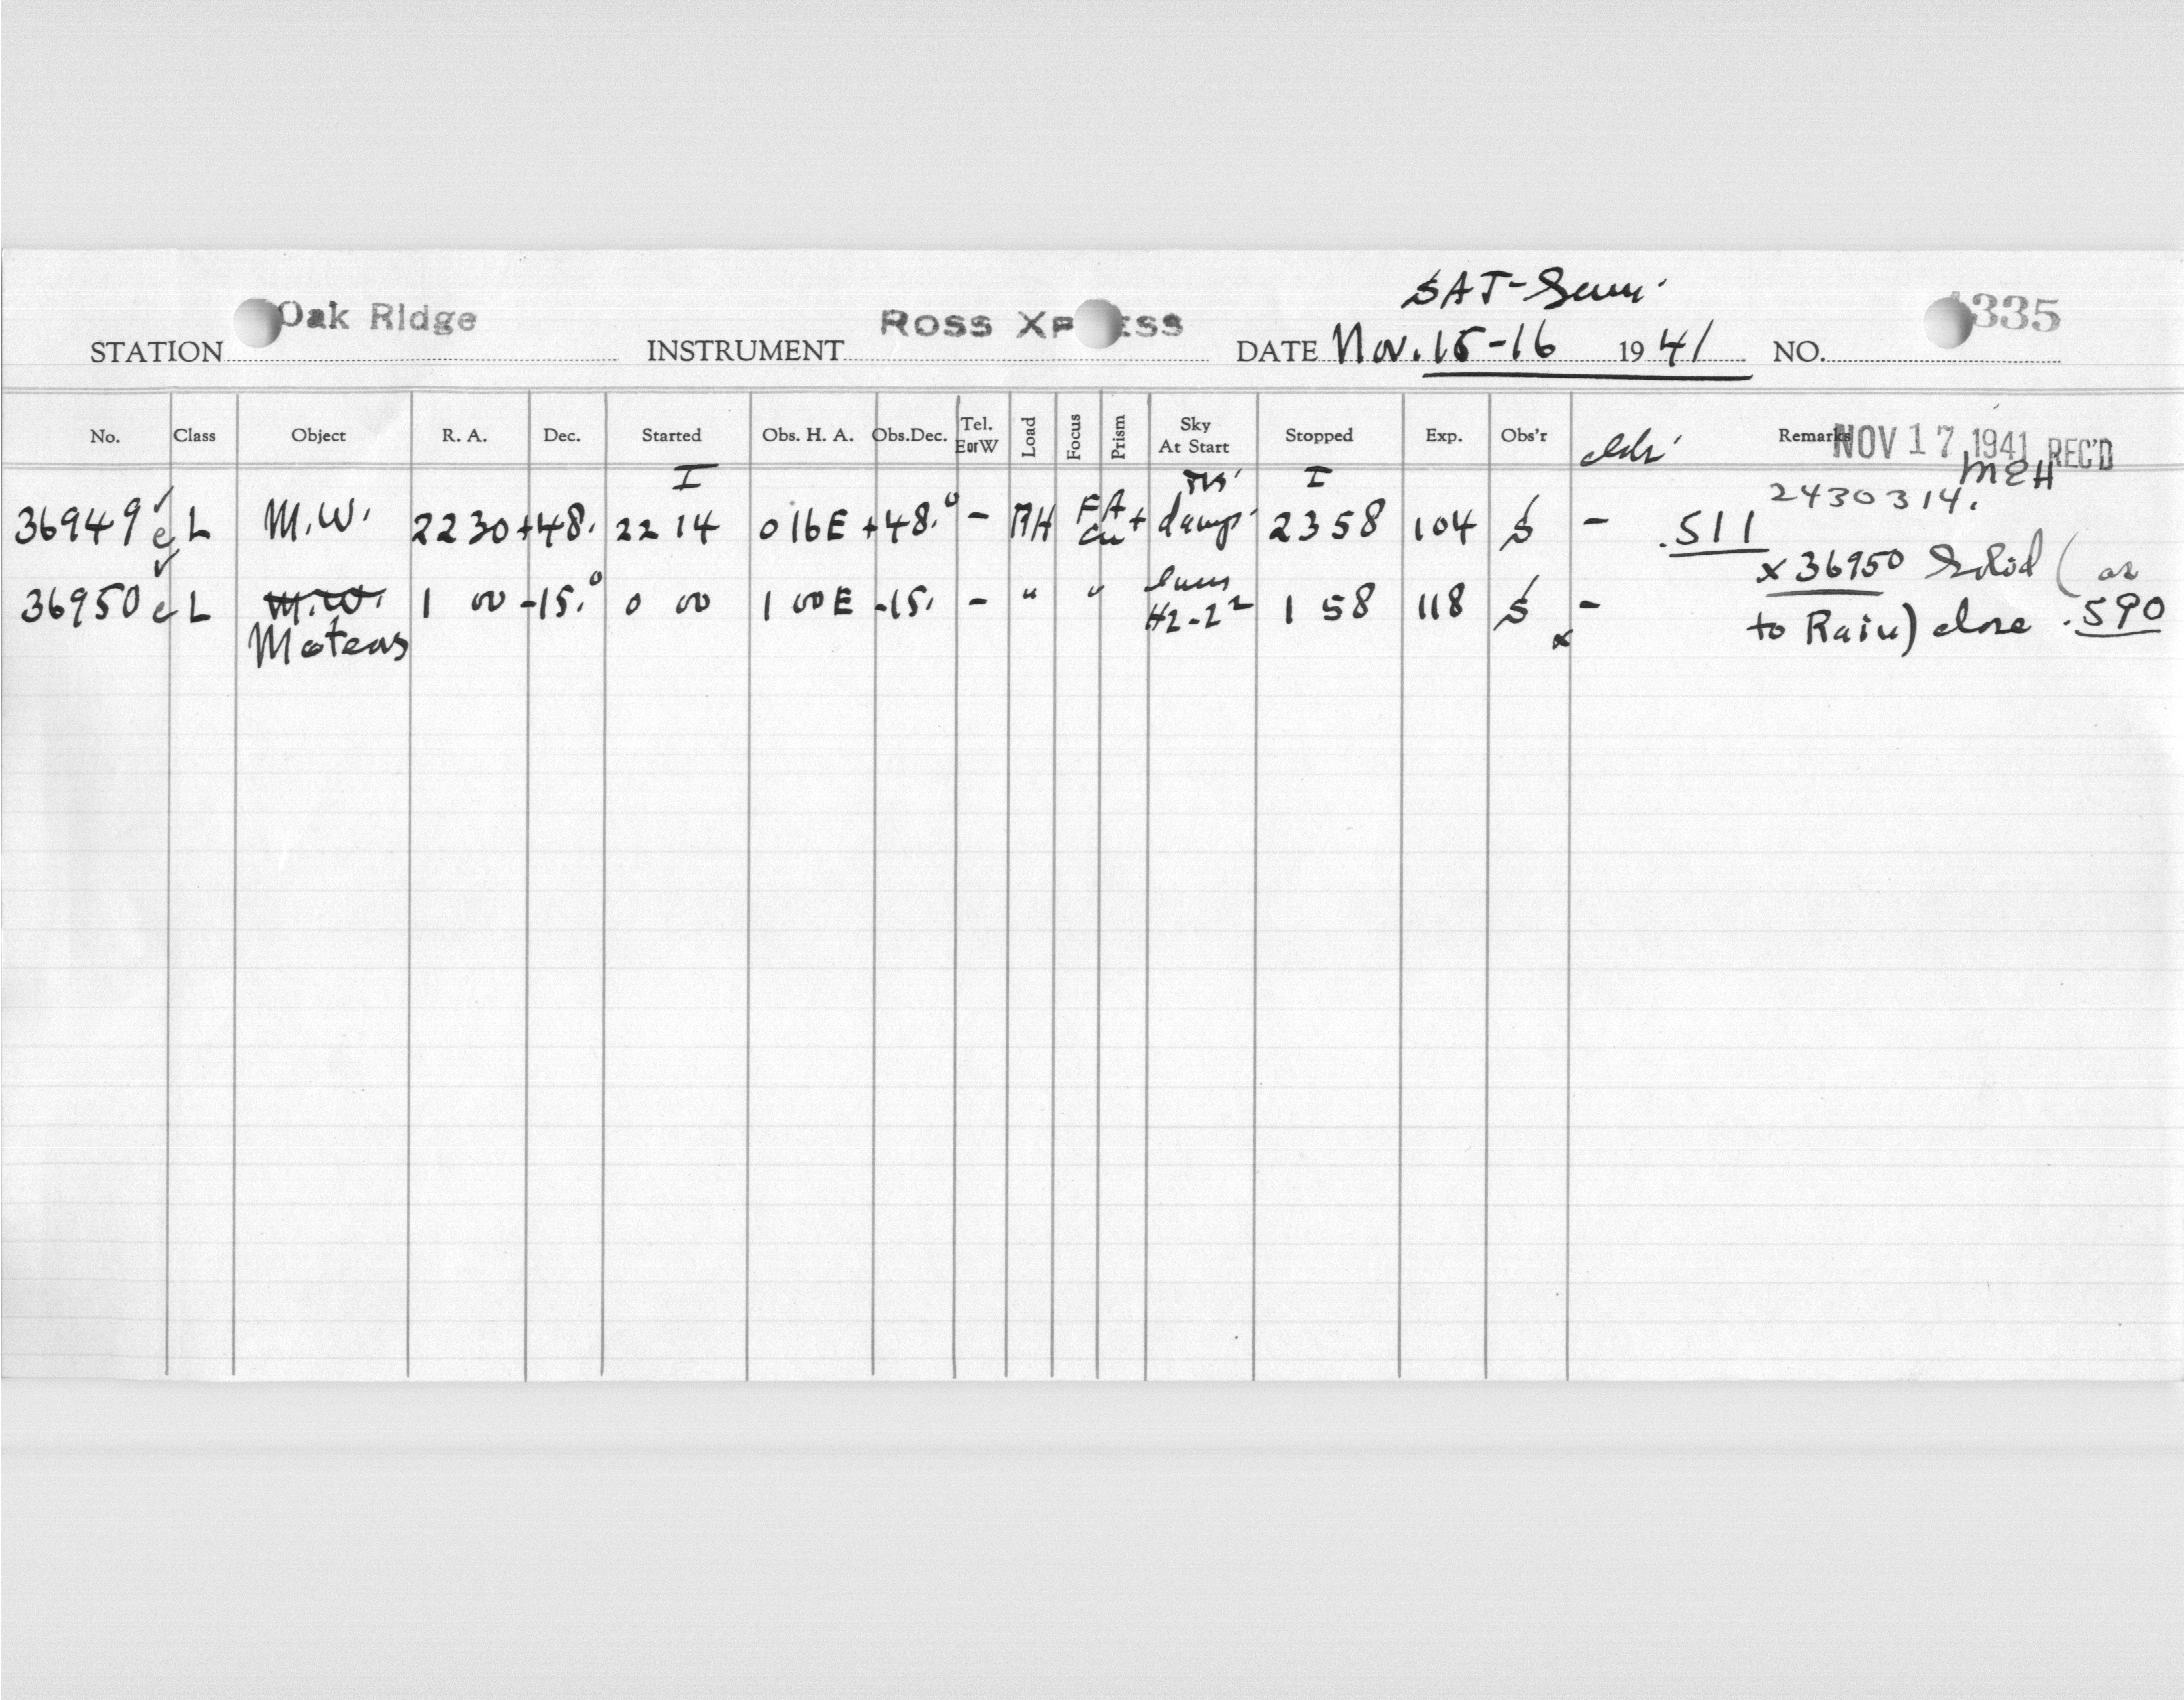 SAT-Sun.
Oak Ridge Ross XP ESS 335
STATION INSTRUMENT DATE Nov. 15-16 1941 NO.
No. Class Object R. A. Dec. Started Obs. H. A. Obs.Dec. Tel. EorW Load Focus Prism Sky At Start Stopped Exp. Obs'r Remarks
NOV 17 1941 REC'D
MEH
I I 2430314.
36949 e L M.W. 22 30 +48. 22 14 0 16E +48.° - RH FA + damp 23 58 104 S - .511
36950 e L M.W. 1 00 -15.° 0 00 1 00E -15. - " " H2-2² 1 58 118 S - x 36950 Solid (as
Meteors x to Rain) close .590